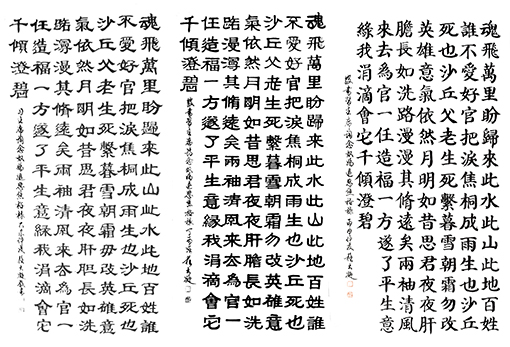 魂飛萬里盼歸來此水此山此地百姓
誰不愛好官把淚焦桐成雨生也沙丘
死也沙丘父老生死繫暮雪朝霜勿改
英雄意氣依然月明如昔思君夜夜肝
膽長如洗路漫漫其脩遠矣兩袖清風
來去為官一任造福一方遂了平生意
綠我涓滴會它千頃澄碧
魂飛萬里盼歸來此水此山此地百姓誰
不愛好官把淚焦桐成雨生也沙丘死也
沙丘父老生死繫暮雪朝霜勿改英雄意
氣依然月明如昔思君夜夜肝膽長如洗
路漫漫其脩遠矣兩袖清風來去為官一
任造福一方遂了平生意綠我涓滴會它
千頃澄碧
魂飛萬里盼歸來此水此山此地百姓誰
不愛好官把淚焦桐成雨生也沙丘死也
沙丘父老生死繫暮雪朝霜毋改英雄意
氣依然月明如昔思君夜夜肝胆長如洗
路漫漫其脩遠矣兩袖清風來去為官一
任造福一方遂了平生意綠我涓滴會它
千頃澄碧